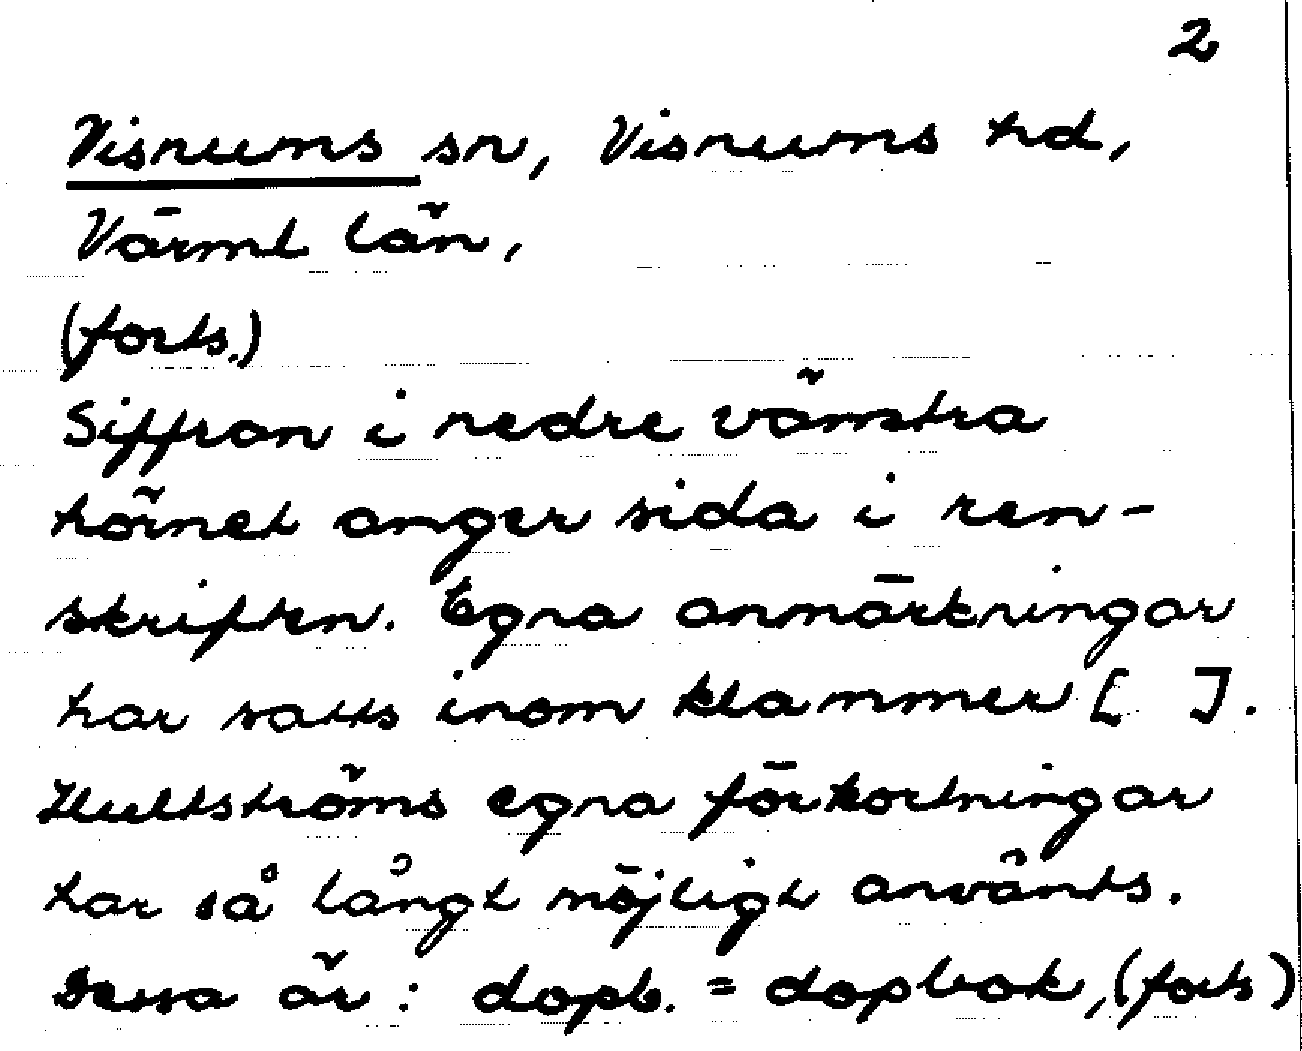 2
Visnums sn, Visnums hd,
Värml län,
(forts.)
Siffran i nedre vänstra
hörnet anger sida i ren-
skriften. Egna anmärkningar
har satts inom klammer [ ].
Hultströms egna förkortningar
har så långt möjligt använts.
Dessa är: dopb. = dopbok, (forts)